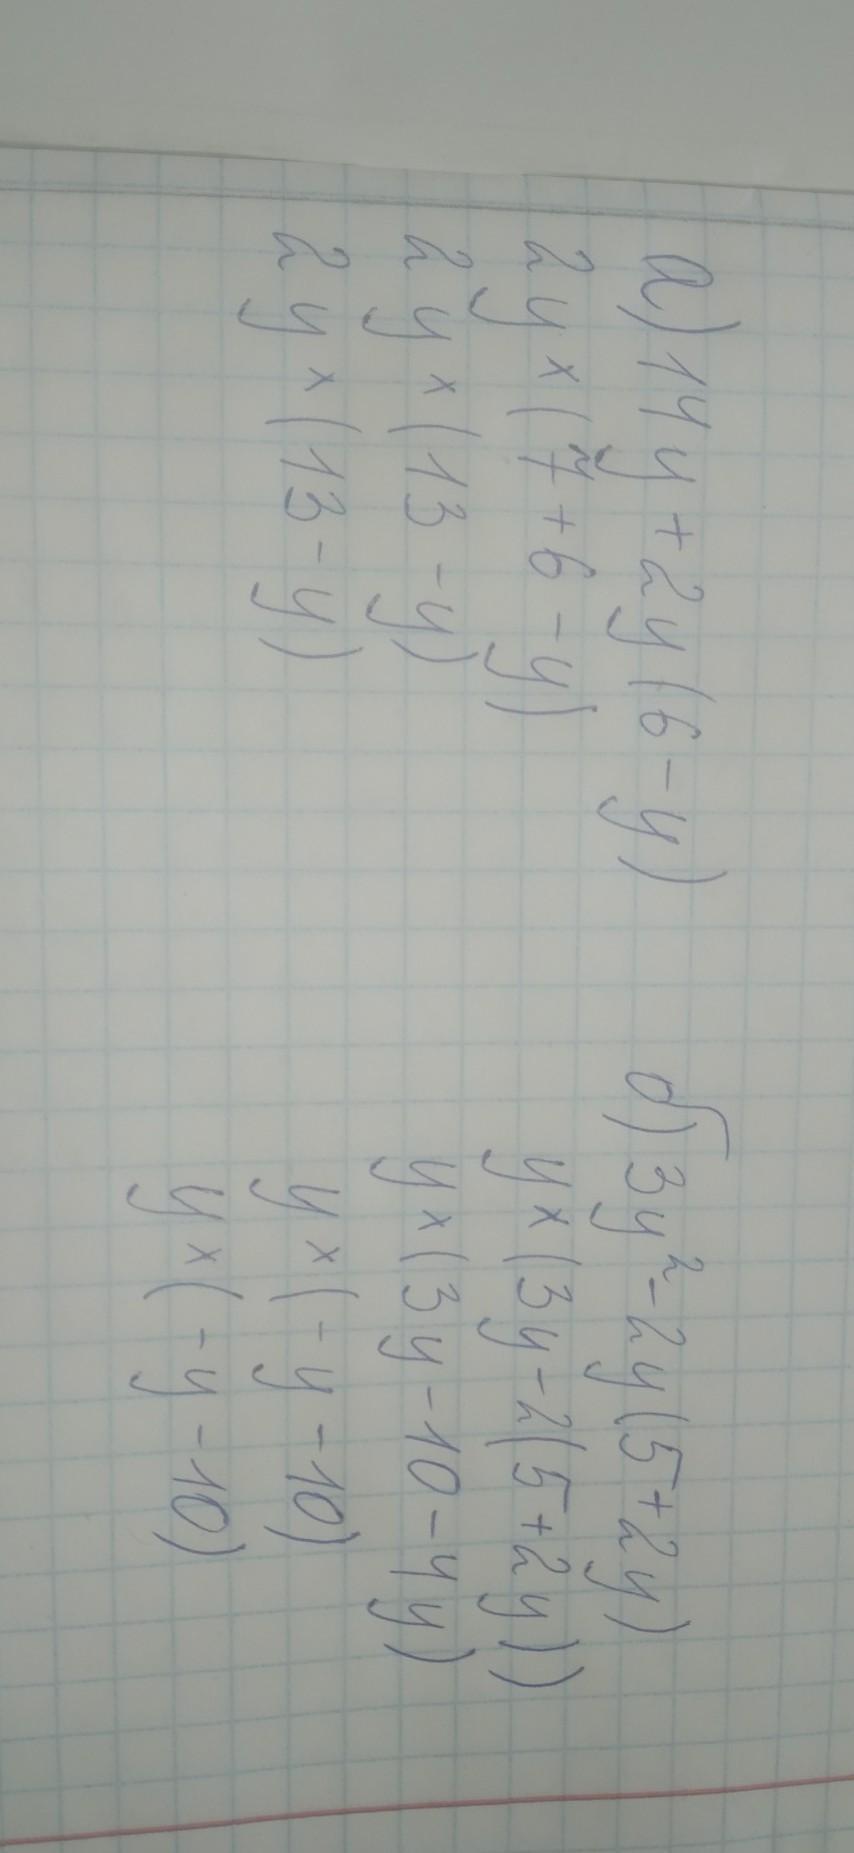 а) 14y + 2y (6 - y)
2y × (7 + 6 - y)
2y × (13 - y)
2y × (13 - y)
б) 3y² - 2y (5 + 2y)
y × (3y - 2(5 + 2y))
y × (3y - 10 - 4y)
y × (- y - 10)
y × (- y - 10)